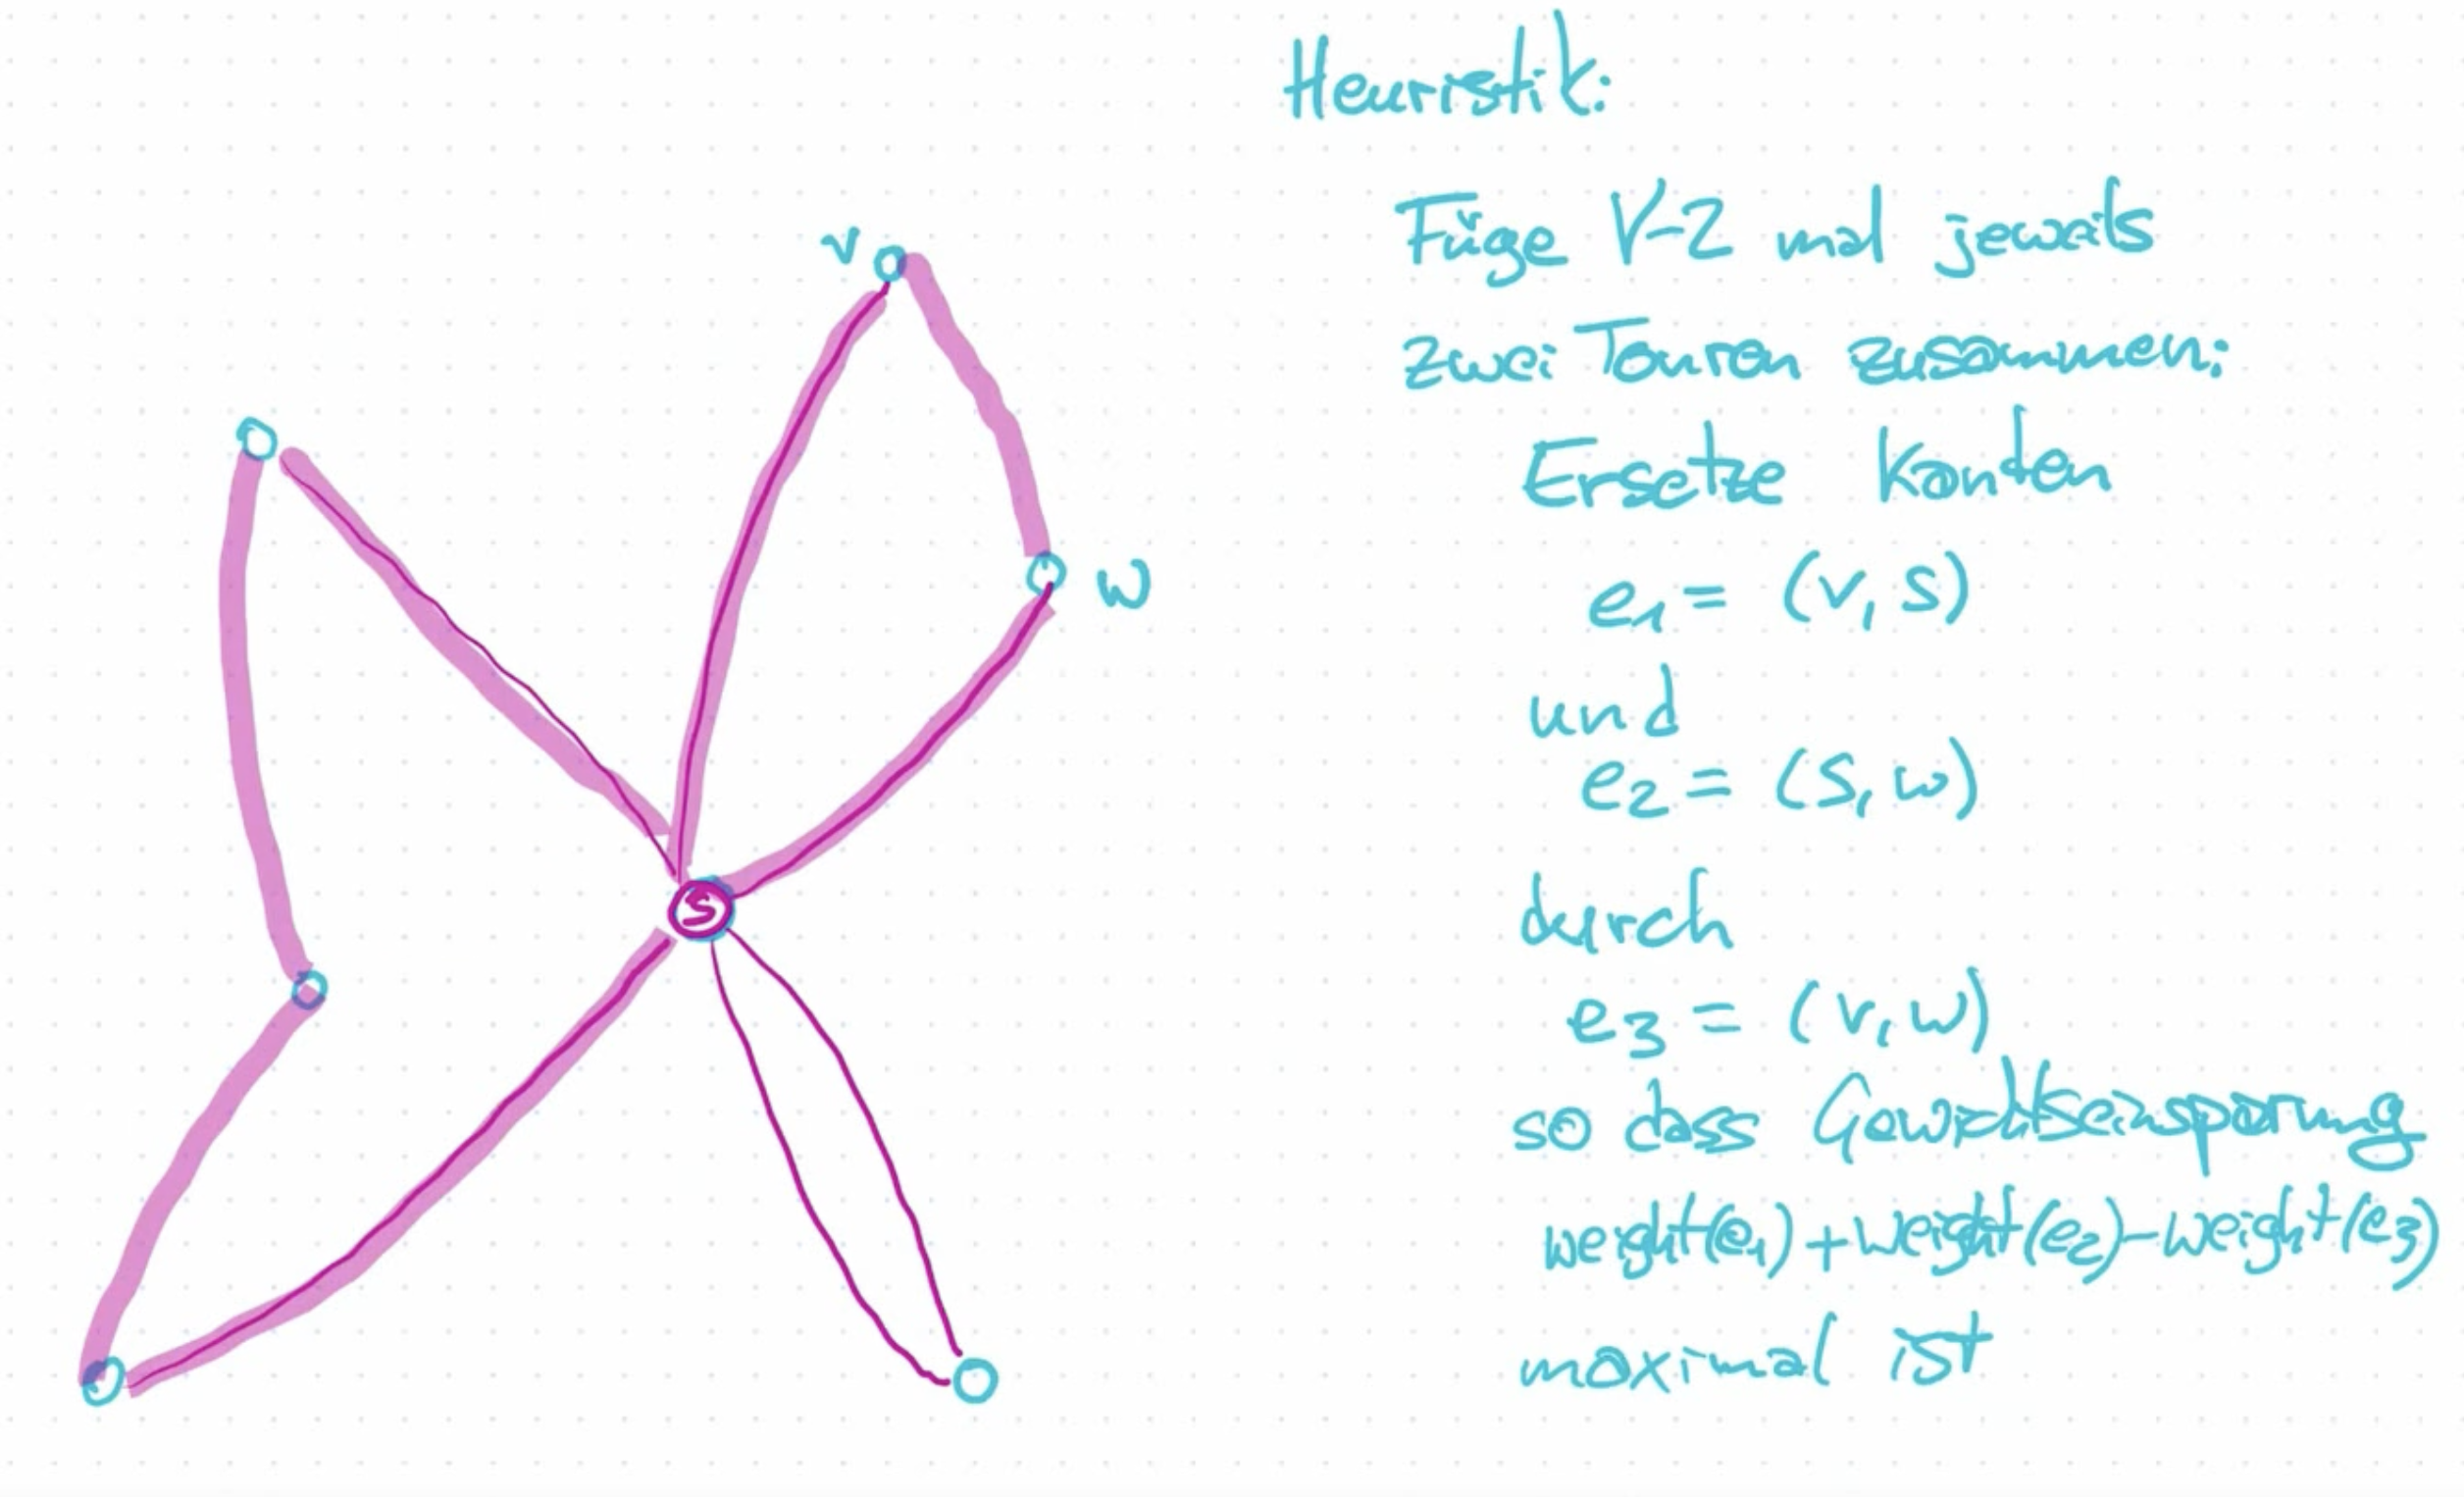 Heuristik:
Füge V-2 mal jeweils
zwei Touren zusammen:
Ersetze Kanten
e1 = (v, s)
und
e2 = (s, w)
durch
e3 = (v, w)
so dass Gewichtseinsparung
weight(e1) + weight(e2) - weight(e3)
maximal ist
v
w
s